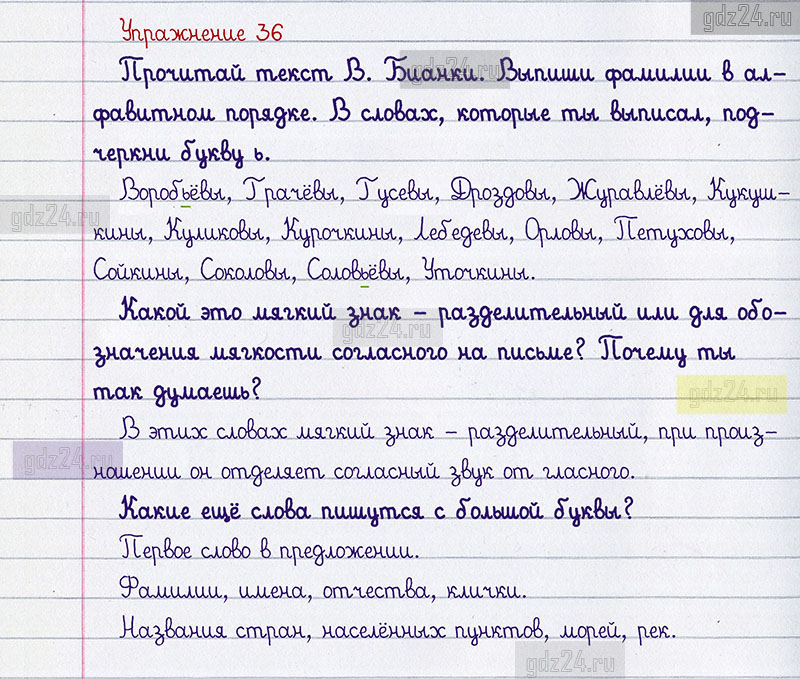 gdz24.ru
Упражнение 36
Прочитай текст В. Бианки. Выпиши фамилии в ал-
gdz24.ru
фавитном порядке. В словах, которые ты выписал, под-
черкни букву ь.
Воробьёвы, Грачёвы, Гусевы, Дроздовы, Журавлёвы, Кукуш-
gdz24.ru
кины, Куликовы, Курочкины, Лебедевы, Орловы, Петуховы,
Сойкины, Соколовы, Соловьёвы, Уточкины.
Какой это мягкий знак – разделительный или для обо-
gdz24.ru
значения мягкости согласного на письме? Почему ты
так думаешь?
gdz24.ru
В этих словах мягкий знак – разделительный, при произ-
gdz24.ru
ношении он отделяет согласный звук от гласного.
Какие ещё слова пишутся с большой буквы?
Первое слово в предложении.
Фамилии, имена, отчества, клички.
Названия стран, населённых пунктов, морей, рек.
gdz24.ru